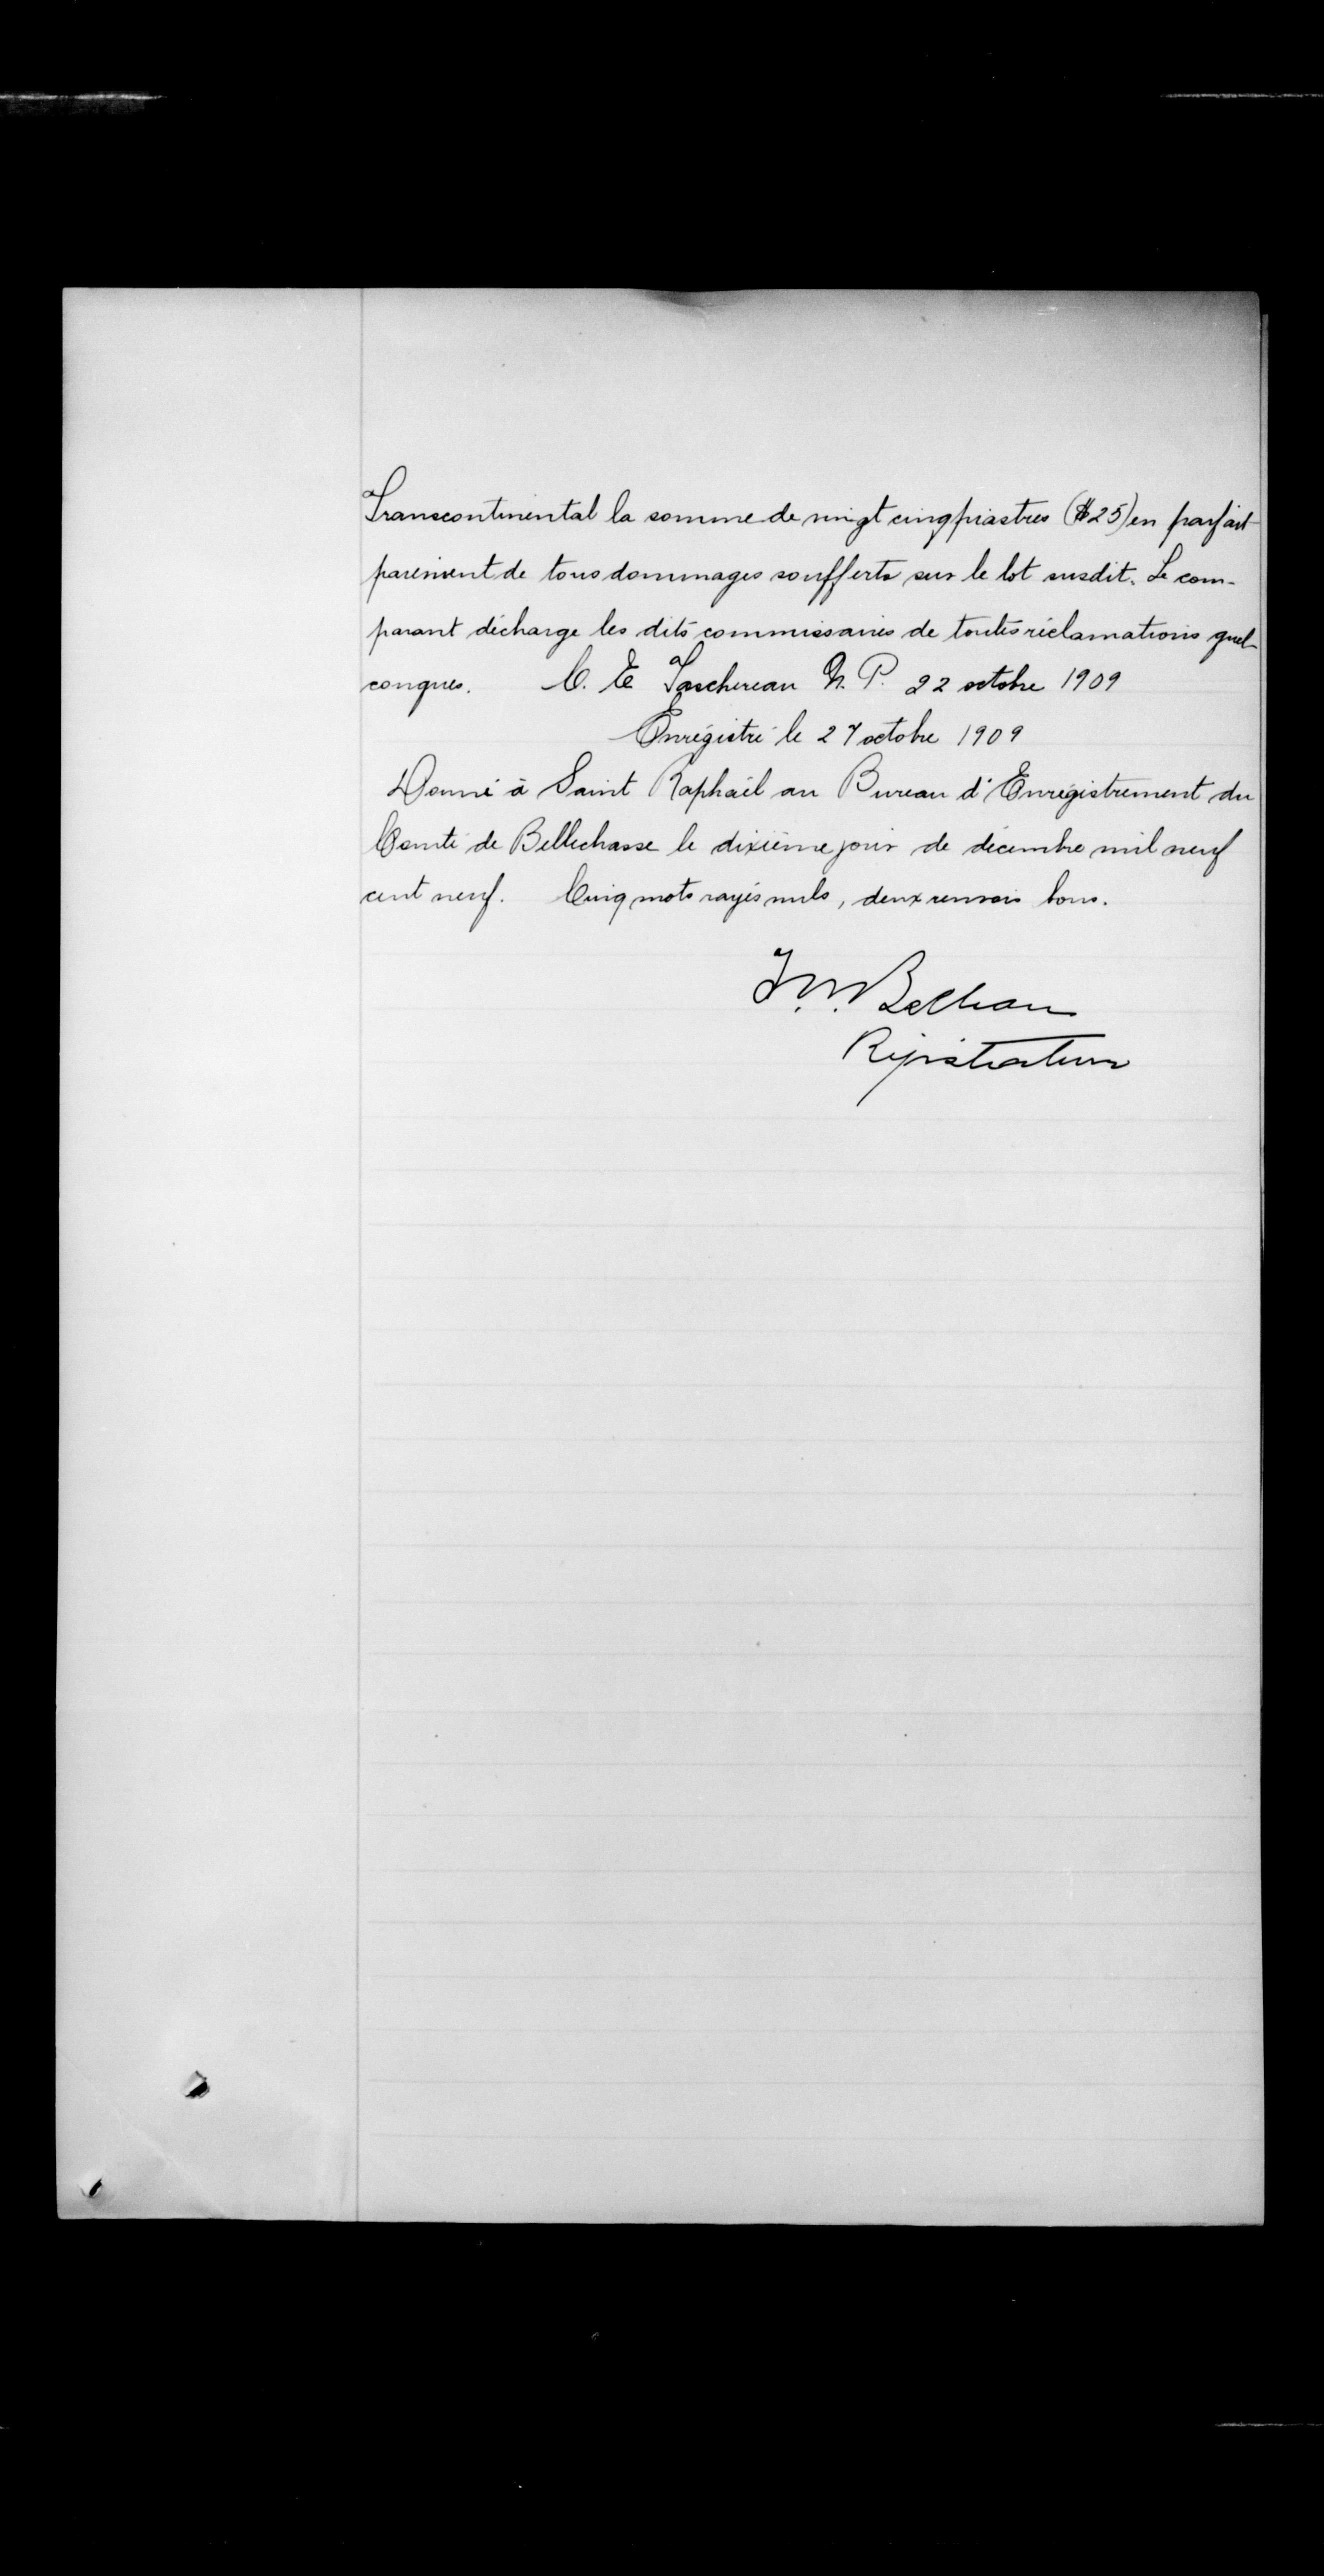 Transcontinental la somme de vingt cinq piastres ($25) en parfait
paiement de tous dommages soufferts sur le lot susdit. Le com-
parant décharge les dits commissaires de toutes réclamations quel-
conques. C. E Taschereau N. P. 22 octobre 1909
Enrégistré le 27 octobre 1909
Donné à Saint Raphaël au Bureau d'Enrégistrement du
Comté de Bellechasse le dixième jour de décembre mil neuf
cent neuf. Cinq mots rayés nuls, deux renvois bons.
Régistrateur